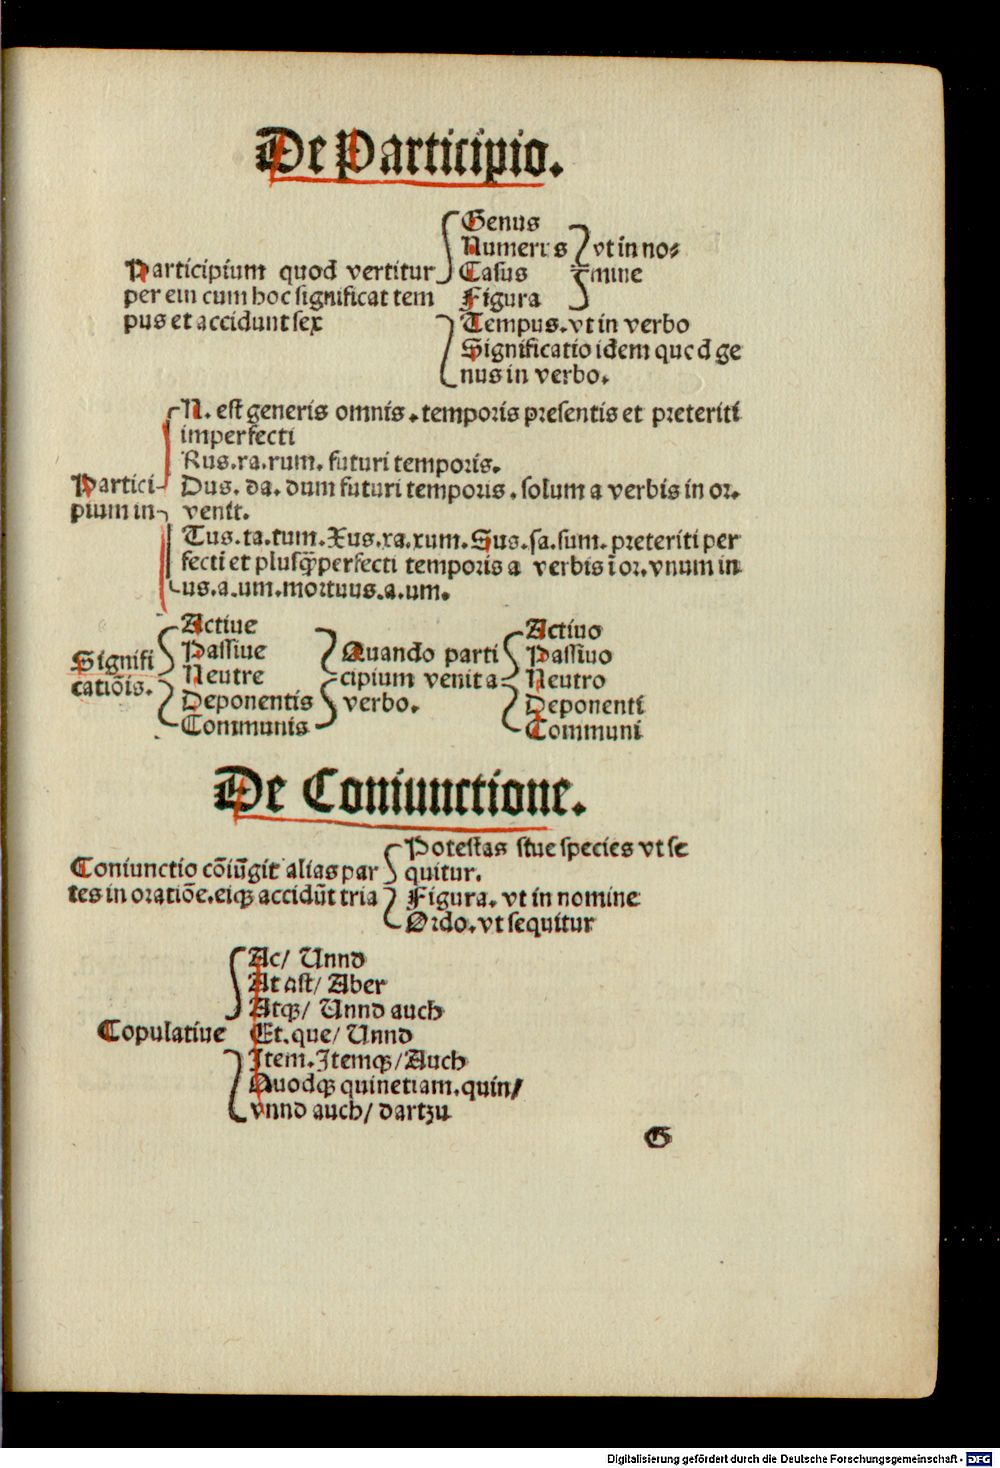 De Participio.
Participium quod vertitur
per ein cum hoc significat tem
pus et accidunt sex
Genus
Numerus
Casus
Figura
vt in no⸗
mine
Tempus. vt in verbo
Significatio idem quod ge
nus in verbo.
Partici
pium in
N. est generis omnis. temporis presentis et preteriti
imperfecti
Rus. ra. rum. futuri temporis.
Dus. da. dum futuri temporis. solum a verbis in or.
venit.
Tus. ta. tum. Xus. xa. xum. Sus. sa. sum. preteriti per
fecti et plusq̄perfecti temporis a verbis ī or. vnum in
us. a. um. mortuus. a. um.
Signifi
catiōis.
Actiue
Passiue
Neutre
Deponentis
Communis
Quando parti
cipium venit a
verbo.
Actiuo
Passiuo
Neutro
Deponenti
Communi
De Coniunctione.
Coniunctio cōiūgit alias par
tes in oratiōe. eiqꝫ accidūt tria
Potestas siue species vt se
quitur.
Figura. vt in nomine
Ordo. vt sequitur
Copulatiue
Ac/ Unnd
At ast/ Aber
Atqꝫ/ Unnd auch
Et. que/ Unnd
Item. Itemqꝫ/ Auch
Quodqꝫ quinetiam. quin/
vnnd auch/ dartzu
G
Digitalisierung gefördert durch die Deutsche Forschungsgemeinschaft - DFG